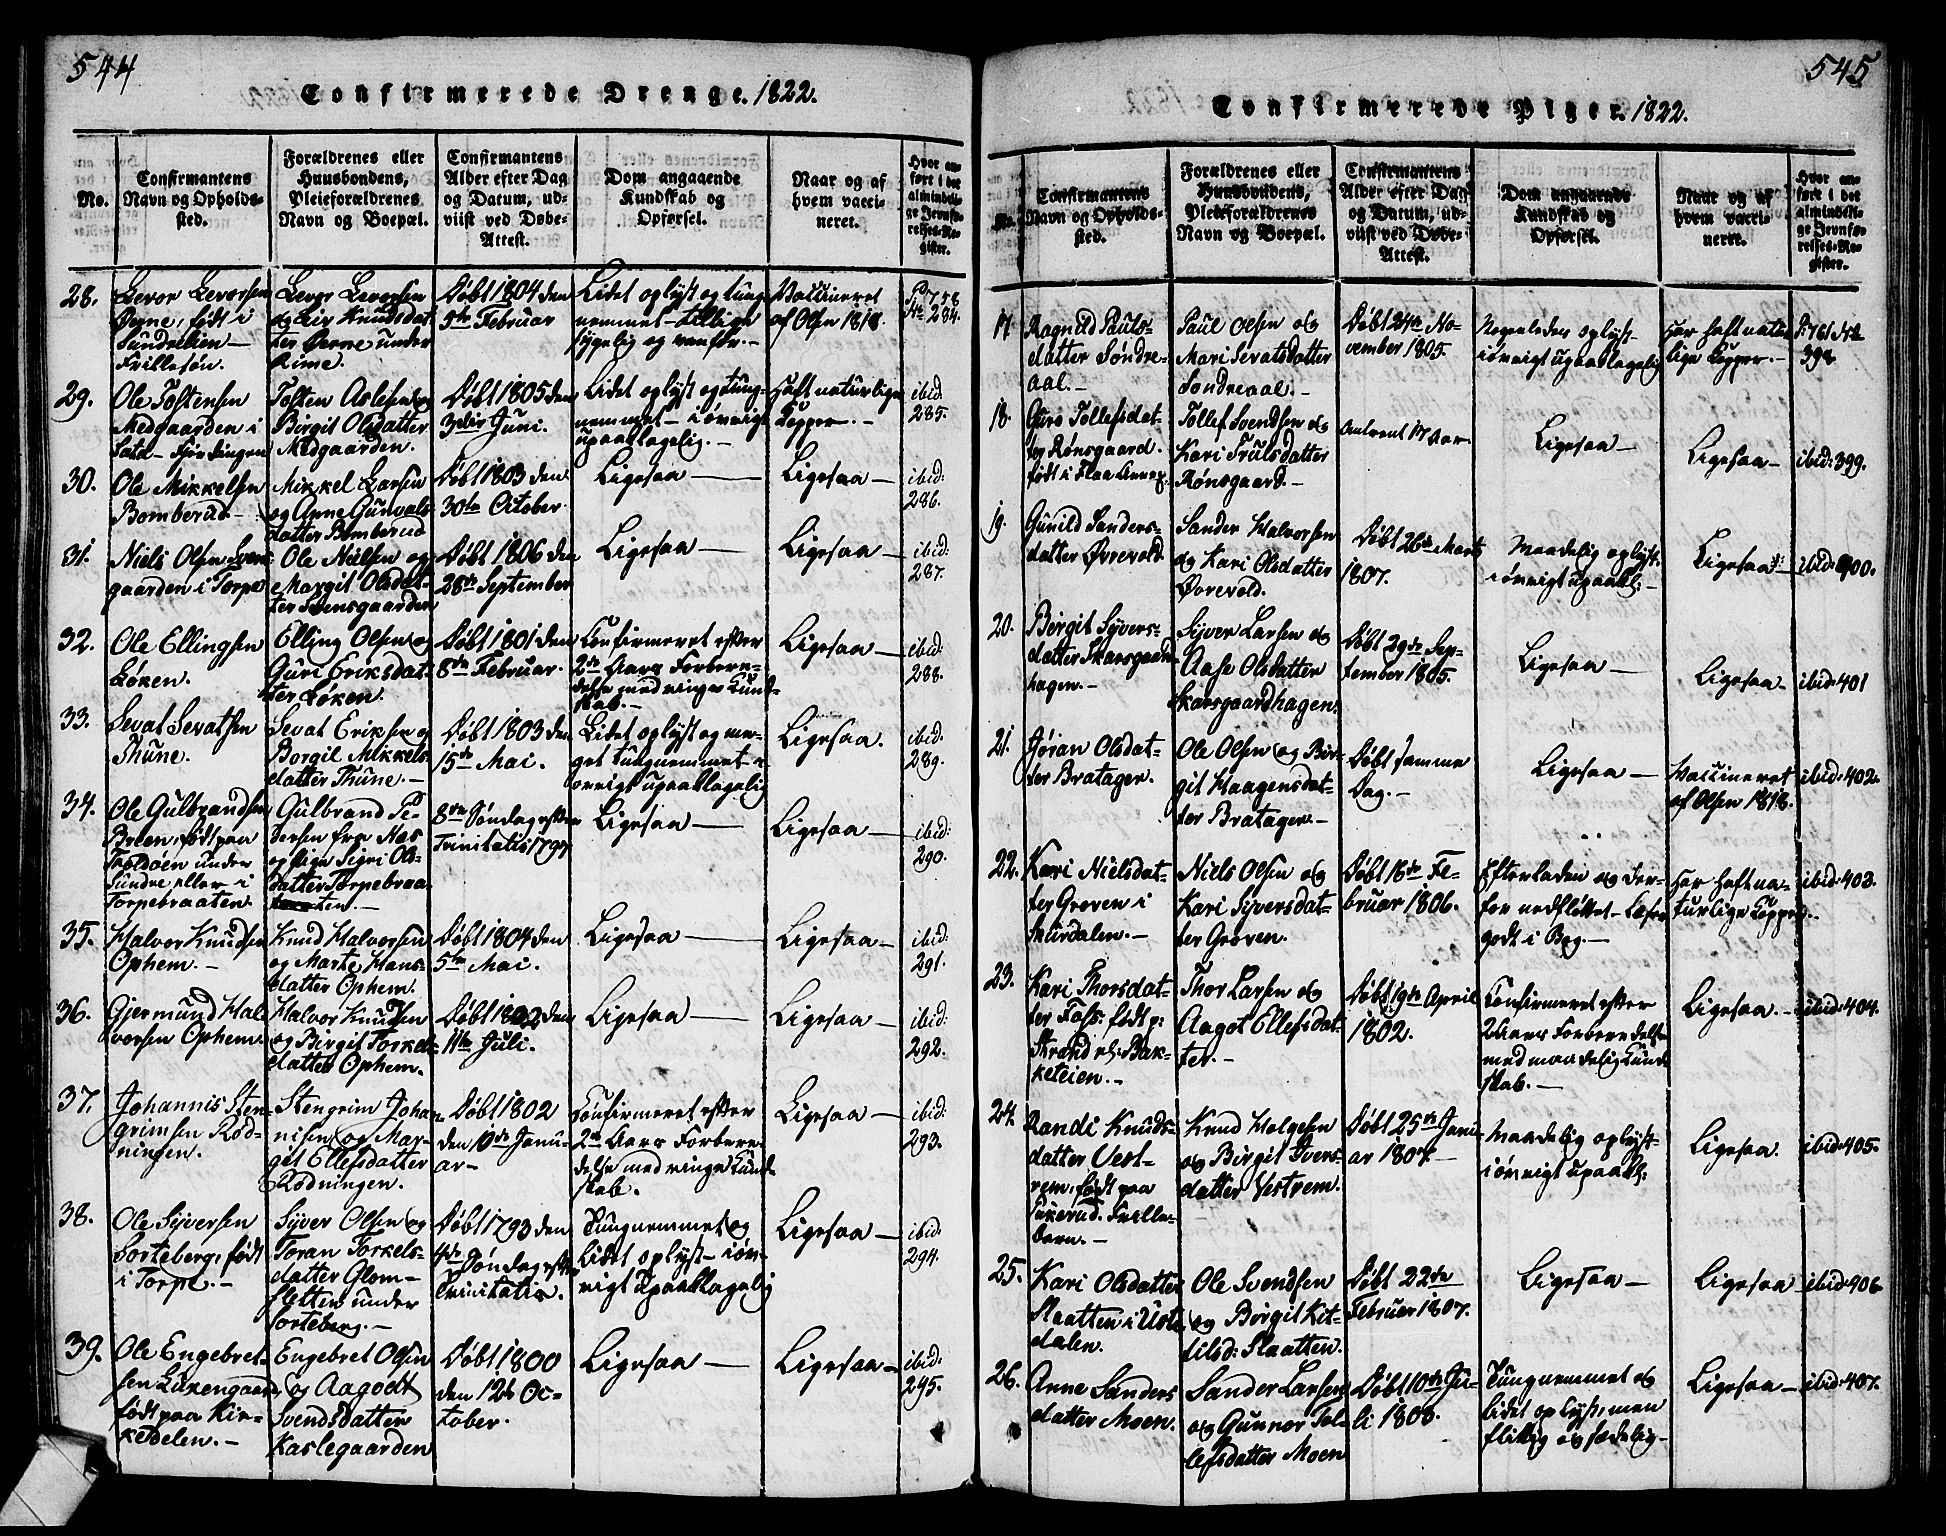 544
Confirmerede Drenge. 1822.
No.
Confirmantens
Navn og Opholds-
sted.
Forældrenes eller
Huusbondens,
Pleieforældrenes
Navn og Boepæl.
Confirmantens
Alder efter Dag
og Datum, ud-
viist ved Døbe-
Attest.
Dom angaaende
Kundskab og
Opførsel.
Naar og af
hvem vacci-
neret.
Hvor an-
ført i det
almindeli-
ge Jevnfø-
relses-Re-
gister.
28.
Levor Levorsen
Øvne, født i
Sundrelien –
Frillesøn.
Levor Levorsen
og Liv Knudsdat-
ter Øvrne under
Rime.
Døbt 1804 den
5te Februar
Lidet oplyst og tung-
nemmet – tillige
sygelig og vanfør. –
Vaccineret
af Olsen 1818.
P. 758
No. 284.
29.
Ole Tostensen
Medgaarden i
Tosten Aslesen og
Birgit Olsdatter
Medgaarden.
Døbt 1805 den
3die Juni.
Lidet oplyst og tung-
nemmet – i øvrigt
upaaklagelig. –
Haft naturlige
Kopper. –
ibid.
285.
30.
Ole Mikkelsen
Bomberud. –
Mikkel Larsen
og Anne Gunvals-
datter Bomberud
Døbt 1803 den
30te October
Ligesaa –
Ligesaa –
ibid:
286.
31.
Niels Olsen Svens-
gaarden i Torpe
Ole Nielsen og
Margit Olsdat-
ter Svensgaarden
Døbt 1806 den
28de September
Ligesaa –
Ligesaa –
ibid:
287.
32.
Ole Ellingsen
Løken.
Elling Olsen og
Guri Eriksdat-
ter Løken.
Døbt 1801 den
8de Februar.
Confirmeret efter
2de Aars Forbere-
delse med ringe Kund-
skab. –
Ligesaa –
ibid:
288.
33.
Sevat Sevatsen
Thune.
Sevat Eriksen og
Borgil Mikkels-
datter Thune. –
Døbt 1803 den
15de Mai.
Lidet oplyst og me-
get tungnemmet i
øvrigt upaaklagelig
Ligesaa.
ibid.
289.
34.
Ole Gulbrandsen
Breen, født paa
Troldøen under
Sundre eller i
Torpebraaten.
Gulbrand Pe-
dersen fra Næs
og Pige Sigri Ols-
datter Torpebraa-
ten. –
8de Søndag efter
Trinitatis 1797
Ligesaa –
Ligesaa –
ibid:
290.
35.
Halvor Knudsen
Ophem. –
Knud Halvorsen
og Marte Hans-
datter Ophem.
Døbt 1804 den
5te Mai.
Ligesaa –
Ligesaa –
ibid:
291.
36.
Gjermund Hal-
vorsen Ophem.
Halvor Knudsen
og Birgit Torkels-
datter Ophem.
Døbt 1802 den
11te Juli.
Ligesaa –
Ligesaa –
ibid:
292.
37.
Johannis Sten-
grimsen Rød-
ningen.
Stengrim Johan-
nisen og Mar-
git Ellefsdatter
Rødningen.
Døbt 1802
den 10de Janu-
ar –
Confirmeret efter
2de Aars Forbere-
delse med ringe Kund-
skab.
Ligesaa –
ibid:
293.
38.
Ole Syversen
Sorteberg, født
i Torpe. –
Syver Olsen og
Toran Torkels-
datter Glom-
sletten under
Sorteberg. –
Døbt 1793 den
4de Søndag efter
Trinitatis.
Tungnemmet og
lidet oplyst – i øv-
rigt upaaklagelig
Ligesaa –
ibid:
294.
39.
Ole Engebret-
sen Luxengaard
født paa Kir-
kedelen. –
Engebret Olsen
og Aagodt
Svendsdatter
Kaslegaarden
Døbt 1800
den 12te Oc-
tober.
Ligesaa –
Ligesaa –
ibid:
295.
545
Confirmerede Piger. 1822.
No.
Confirmantens
Navn og Opholds-
sted.
Forældrenes eller
Huusbondens,
Pleieforældrenes
Navn og Boepæl.
Confirmantens
Alder efter Dag
og Datum, ud-
viist ved Døbe-
Attest.
Dom angaaende
Kundskab og
Opførsel.
Naar og af
hvem vacci-
neret.
Hvor an-
ført i det
almindeli-
ge Jevnfø-
relses-Re-
gister.
17.
Ragnild Pauls-
datter Søndre-
aal. –
Paul Olsen og
Mari Sevatsdatter
Sondreaal. –
Døbt 24de No-
vember 1805.
Nogenledes oplyst –
i øvrigt upaaklagelig
Har haft natur-
lige Kopper. –
P: 761. No.
398.
18.
Guro Tollefsdat-
ter Rønsgaard.
født i Flaa Annex.
Tollef Svendsen og
Kari Trulsdatter
Rønsgaard. –
Omtrent 17 Aar.
Ligesaa –
Ligesaa –
ibid: 399.
19.
Gunild Sanders-
datter Øvrevold.
Sander Halvorsen
og Kari Olsdatter
Øvrevold.
Døbt 26de Marts
1807.
Maadelig oplyst;
i øvrigt upaakl: –
Ligesaa –
ibid: 400.
20.
Birgit Syvers-
datter Skarsgaard-
hagen. –
Syver Larsen og
Aase Olsdatter
Skarsgaardhagen.
Døbt 29de Sep-
tember 1805.
Ligesaa –
Ligesaa –
ibid: 401
21.
Jøran Olsdat-
ter Bratager.
Ole Olsen og Bir-
git Haagensdat-
ter Bratager. –
Døbt samme
Dag. –
Ligesaa –
Vaccineret
af Olsen 1818.
ibid: 402.
22.
Kari Nielsdat-
ter Grøven i
Skurdalen. –
Niels Olsen og
Kari Syversdat-
ter Grøven.
Døbt 16de Fe-
bruar 1806.
Efterladen og der-
for nedflöttet – læser
godt i Bog. –
Har haft na-
turlige Kopper.
ibid: 403.
23.
Kari Thorsdat-
ter Foss: født p:
Strand el: Bak-
keteien. –
Thor Larsen og
Aagot Ellefsdat-
ter. –
Døbt 19de April
1802.
Confirmeret efter
2 Aars Forberedelse
med maadelig Kund-
skab. –
Ligesaa. –
ibid: 404.
24.
Randi Knuds-
datter Vest-
rem, født paa
Frille-
barn. –
Knud Helgesen
og Birgit Ivers-
datter Vestrem.
Døbt 25de Janu-
ar 1807. –
Maadelig oplyst –
i øvrigt upaakl:
Ligesaa.
ibid: 405.
25.
Kari Olsdatter
Slaatten i Uste-
dalen.
Ole Svendsen
og Birgit Kit-
tilsd: Slaatten.
Døbt 22de
Februar 1807.
Ligesaa –
Ligesaa –
ibid: 406.
26.
Anne Sanders-
datter Moen.
Sander Larsen
og Gunnor Tol-
lefsdatter Moen
Døbt 10de Ju-
li 1808.
Tungnemmet og
lidet oplyst, men
flittig og sædelig –
Ligesaa –
ibid: 407.